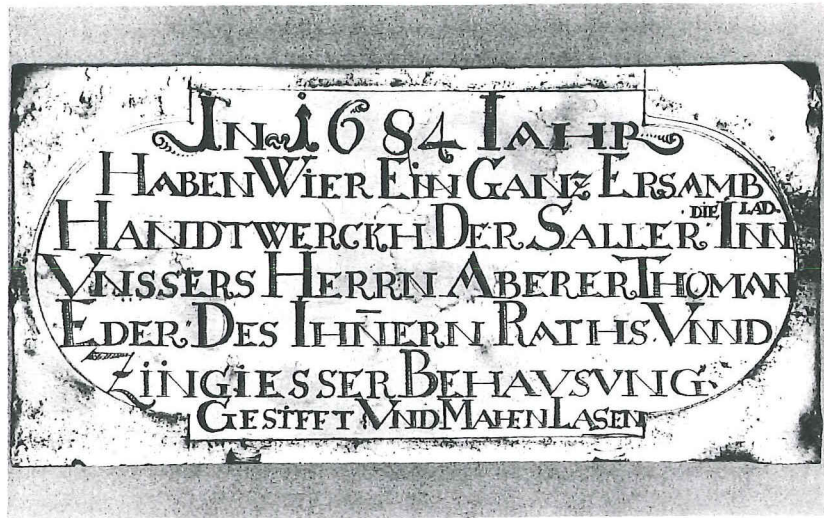 IN 1684 IAHR
HABEN WIER EIN GANZ ERSAMB
DIE LAD.
HANDTWERCKH DER SALLER INN
VNSSERS HERRN ABERER THOMAN
EDER: DES IHN̄ERN RATHS VNND
ZINGIESSER BEHAVSVNG.
GESTIFFT VND MAHEN LASEN